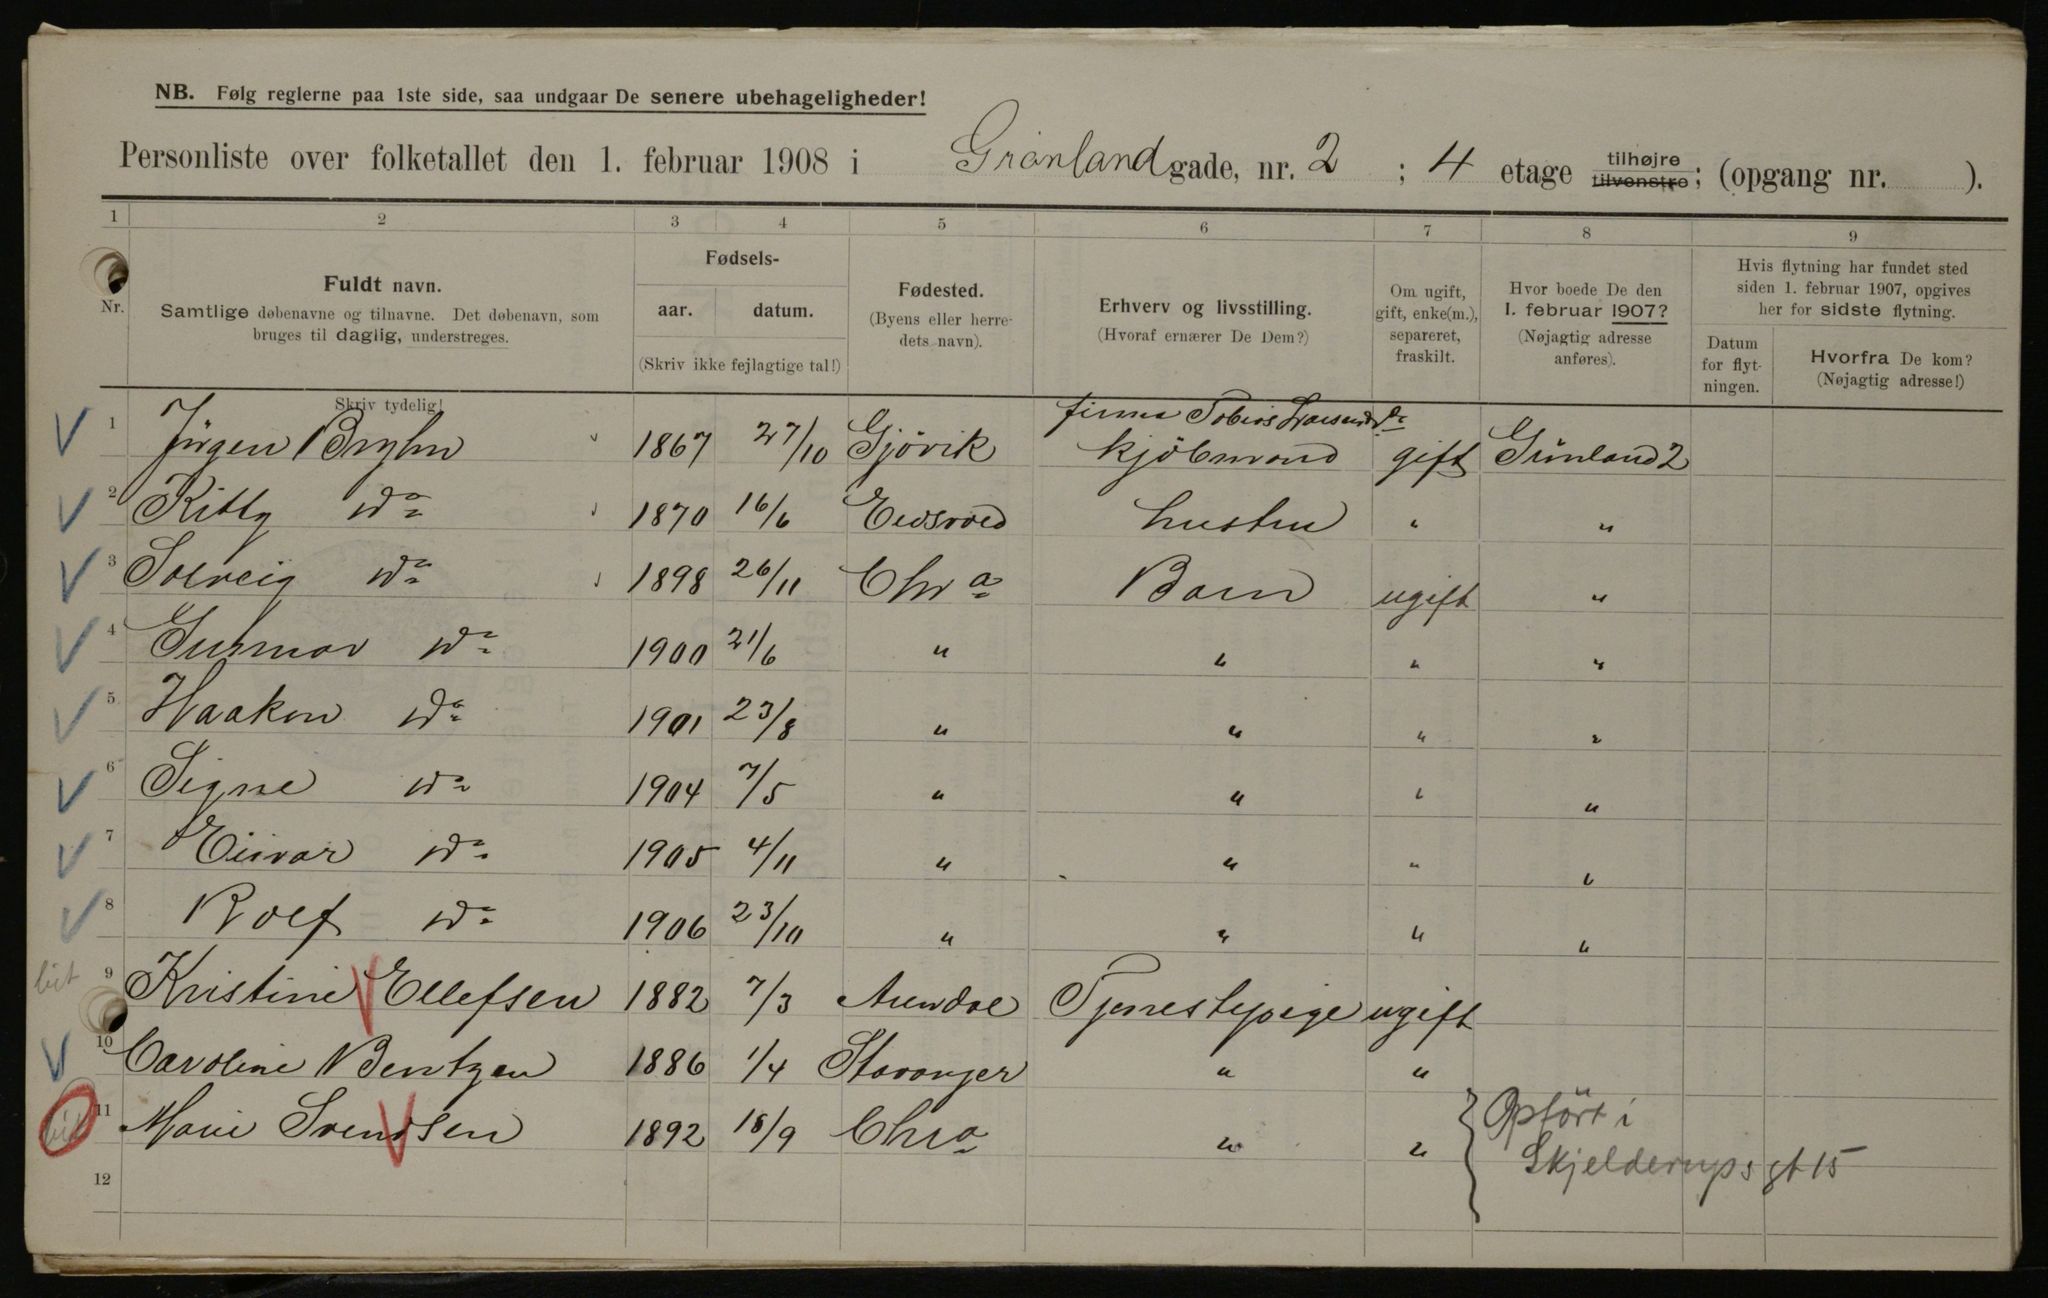 NB. Følg reglerne paa 1ste side, saa undgaar De senere ubehageligheder!
Personliste over folketallet den 1. februar 1908 i Grønland gade, nr. 2 ; 4 etage tilhøjre tilvenstre; (opgang nr. ).
1 2 3 4 5 6 7 8 9
Nr.
Fuldt navn.
Samtlige døbenavne og tilnavne. Det døbenavn, som
bruges til daglig, understreges.
Skriv tydelig!
Fødsels-
aar. datum.
(Skriv ikke fejlagtige tal!)
Fødested.
(Byens eller herre-
dets navn).
Erhverv og livsstilling.
(Hvoraf ernærer De Dem?)
Om ugift,
gift, enke(m.),
separeret,
fraskilt.
Hvor boede De den
1. februar 1907?
(Nøjagtig adresse
anføres).
Hvis flytning har fundet sted
siden 1. februar 1907, opgives
her for sidste flytning.
Datum
for flyt-
ningen.
Hvorfra De kom?
(Nøjagtig adresse!)
firma Tobias
1 Jörgen 1867 27/10 Gjövik kjöbmand gift Grönland 2
2 Kitty do 1870 16/6 Eidsvold hustru " "
3 Solveig do 1898 26/11 Chra Barn ugift "
4 Gunnar do 1900 21/6 " " " "
5 Haakon do 1901 23/8 " " " "
6 Signe do 1904 7/5 " " " "
7 Eivar do 1905 4/11 " " " "
8 Rolf do 1906 23/10 " " " "
9 Kristine Ellefsen 1882 7/3 Arendal Tjenestepige ugift
10 Caroline Bentzen 1886 1/4 Stavanger " "
11 Marie Svendsen 1892 18/9 Chra " "
Opfört i
Skjelderups gt 15
12